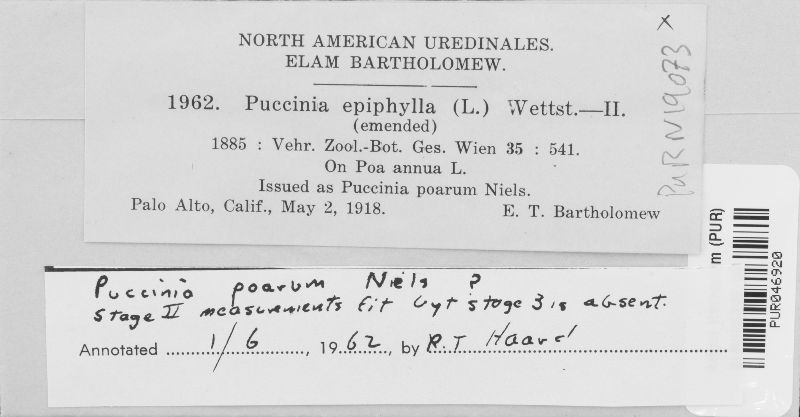 NORTH AMERICAN UREDINALES.
ELAM BARTHOLOMEW.
1962. Puccinia epiphylla (L.) Wettst.—II.
(emended)
1885 : Vehr. Zool.-Bot. Ges. Wien 35 : 541.
On Poa annua L.
Issued as Puccinia poarum Niels.
Palo Alto, Calif., May 2, 1918. E. T. Bartholomew
x
PUR N19073
m (PUR)
PUR046920
Puccinia poarum Niels ?
Stage II measurements fit but stage 3 is absent.
Annotated 1/6, 1962, by R.T Haard